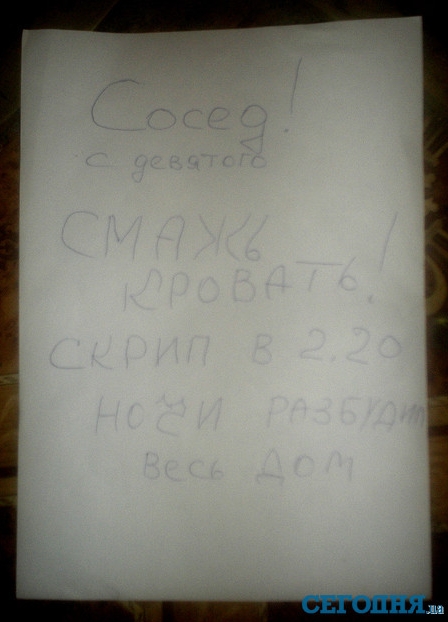 Сосед!
с девятого
СМАЖЬ
КРОВАТЬ!
СКРИП В 2.20
НОЧИ РАЗБУДИЛ
ВЕСЬ ДОМ
СЕГОДНЯ.ua